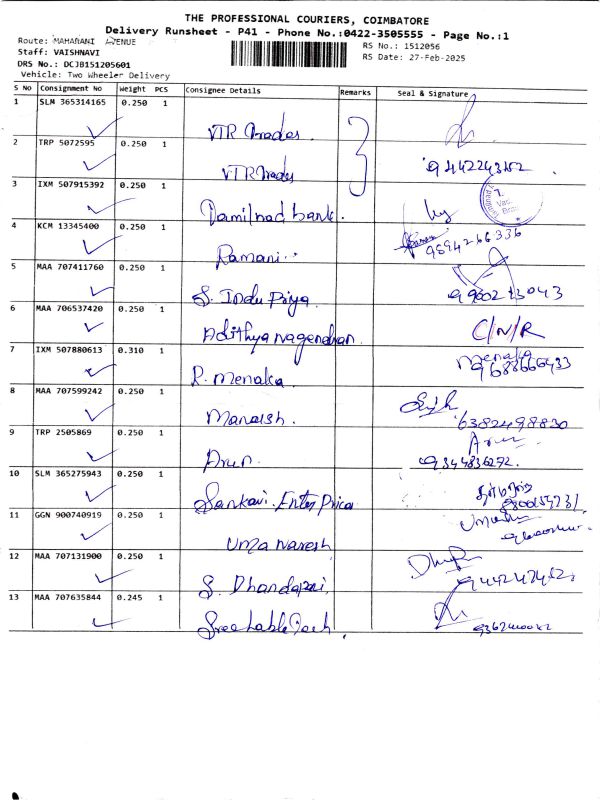 THE PROFESSIONAL COURIERS, COIMBATORE
Delivery Runsheet - P41 - Phone No.:0422-3505555 - Page No.:1
Route: MAHARANI AVENUE
RS No.: 1512056
Staff: VAISHNAVI
RS Date: 27-Feb-2025
DRS No.: DCJB151205601
Vehicle: Two Wheeler Delivery
S No Consignment No Weight PCS Consignee Details Remarks Seal & Signature
1 SLM 365314165 0.250 1
VTR Trades
2 TRP 5072595 0.250 1
VTR Trades
3 IXM 507915392 0.250 1
Tamilnad bank.
4 KCM 13345400 0.250 1
9894266336
Ramani..
5 MAA 707411760 0.250 1
S. Indu Priya
6 MAA 706537420 0.250 1
Adithya nagendran C/N/R
7 IXM 507880613 0.310 1
Menaka
R. Menaka
8 MAA 707599242 0.250 1
Manaish. 6382498830
9 TRP 2505869 0.250 1
Arun
Arun 9344836272.
10 SLM 365275943 0.250 1
Sankavi Enter Prices
11 GGN 900740919 0.250 1
Uma naresh
12 MAA 707131900 0.250 1
S. Dhandapai
13 MAA 707635844 0.245 1